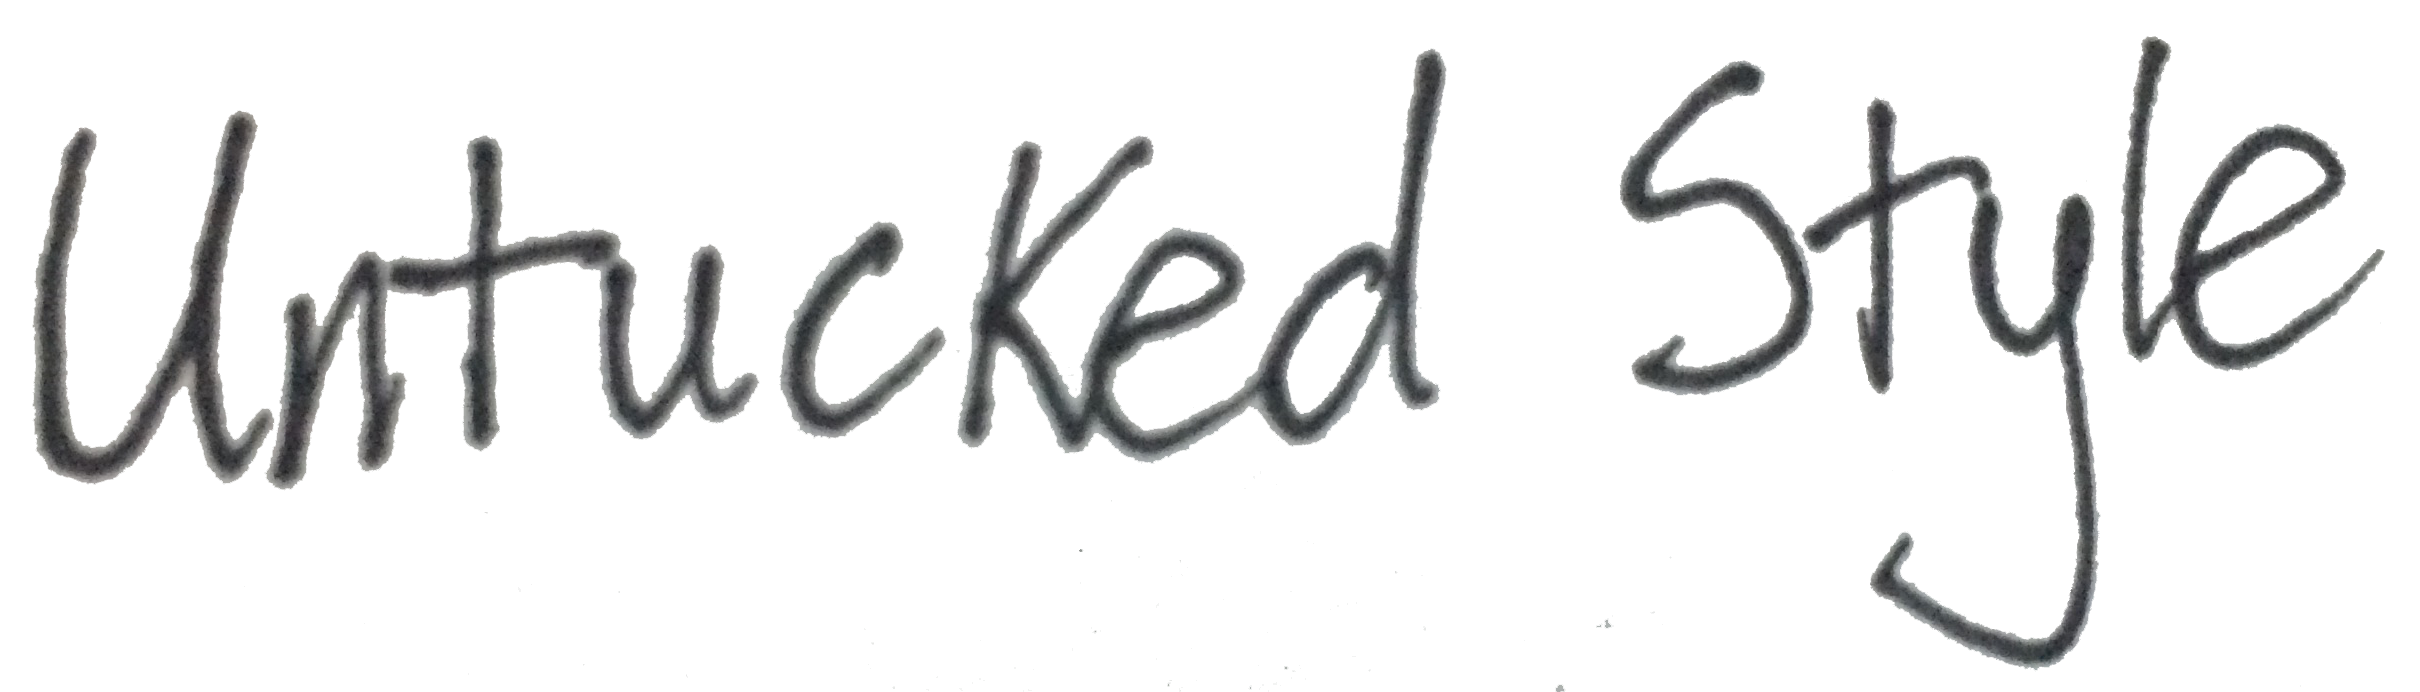 Untucked Style